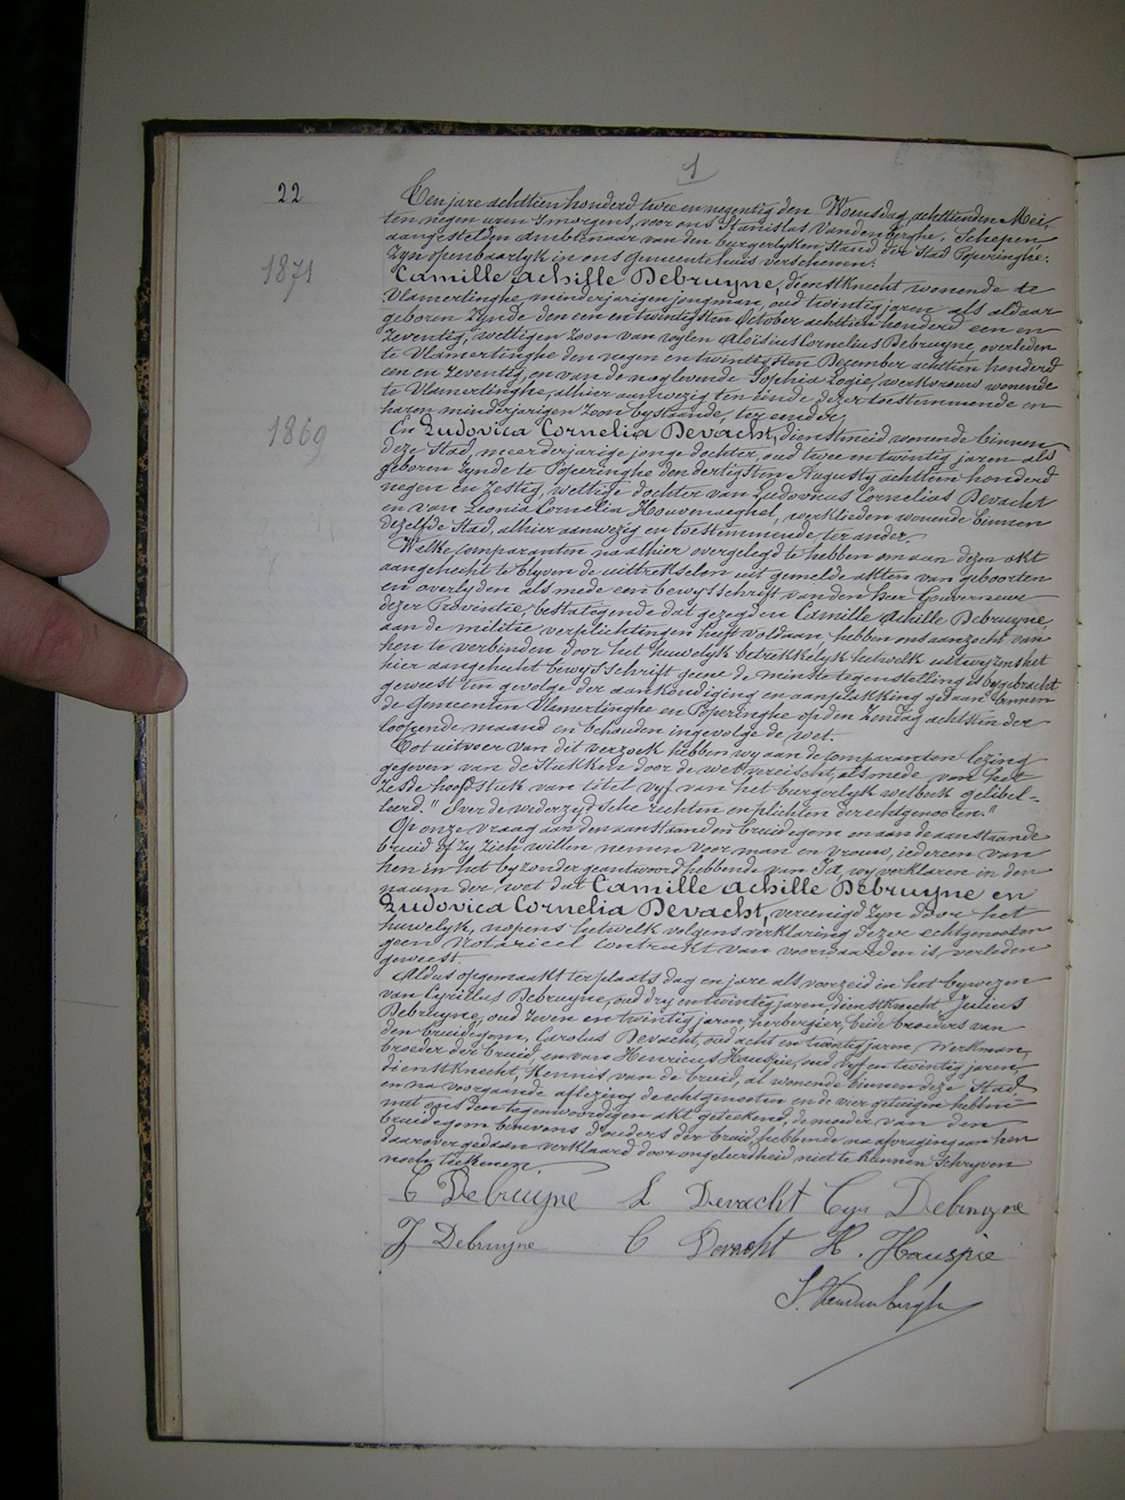 1
22
Ten jare achttien honderd twee en negentig den Woensdag achttienden Mei,
ten negen uren 's morgens, voor ons Stanislas Vandenberghe, Schepen,
aangestelden ambtenaar van den burgerlyken Stand der Stad Poperinghe.
Zyn openbaarlyk in ons gemeentehuis verschenen:
1871
Camille Achille Debruyne, dienstknecht wonende te
Vlamertinghe minderjarigen jongman, oud twintig jaren als aldaar
geboren zynde den een en twintigsten October achttien honderd een en
zeventig, wettigen zoon van wylen Aloisius Cornelius Debruyne, overleden
te Vlamertinghe den negen en twintigsten December achttien honderd
een en zeventig, en van de noglevende Sophia Logie, werkvrouw wonende
te Vlamertinghe, alhier aanwezig ten einde dezer toestemmende en
haren minderjarigen zoon bystaande, ter eender,
1869
En Ludovica Cornelia Devacht, dienstmeid wonende binnen
deze Stad, meerderjarige jonge dochter, oud twee en twintig jaren als
geboren zynde te Poperinghe den dertigsten Augusty achttien honderd
negen en zestig, wettige dochter van Ludovicus Cornelius Devacht
en van Leonia Cornelia Houvenaeghel, werklieden wonende binnen
dezelfde Stad, alhier aanwezig en toestemmende ter ander.
Welke comparanten na alhier overgelegd te hebben om aan dezen akt
aangehecht te blyven de uittrekselen uit gemelde akten van geboorten
en overlyden als mede een bewysschrift van den heer Gouverneur
dezer Provintie, bestatigende dat gezegden Camille Achille Debruyne,
aan de militie verplichtingen heeft voldaan, hebben ons aanzocht van
hen te verbinden door het huwelyk betrekkelyk hetwelk uitwyzens het
hier aangehecht bewysschrift geene de minste tegenstelling is bygebracht
geweest ten gevolge der aankondiging en aanplakking gedaan binnen
de Gemeenten Vlamertinghe en Poperinghe op den Zondag achtsten der
loopende maand en behouden ingevolge de wet.
Tot uitvoer van dit verzoek hebben wy aan de comparanten lezing
gegeven van de stukken door de wet vereischt, als mede van het
zesde hoofdstuk van titel vyf van het burgerlyk wetboek gelibel-
leerd. "Over de wederzydsche rechten en plichten der echtgenooten."
Op onze vraag aan den aanstaanden bruidegom en aan de aanstaande
bruid of zy zich willen nemen voor man en vrouw, iedereen van
hen in het byzonder geantwoord hebbende van Ja, wy verklaren in den
naam der wet dat Camille Achille Debruyne en
Ludovica Cornelia Devacht, vereenigd zyn door het
huwelyk, nopens hetwelk volgens verklaring dezer echtgenooten
geen Notarieel contrakt van voorwaarden is verleden
geweest.
Aldus opgemaakt ter plaats dag en jare als voorzeid in het bywezen
van Cyrillus Debruyne, oud dry en twintig jaren, dienstknecht Julius
Debruyne, oud zeven en twintig jaren, herbergier, beide broeders van
den bruidegom, Carolus Devacht, oud acht en twintig jaren, Werkman,
broeder der bruid, en van Henricus Hauspie, oud vyf en twintig jaren,
dienstknecht, kennis van de bruid, al wonende binnen deze Stad
en na voorgaande aflezing de echtgenooten en de vier getuigen hebben
met ons den tegenwoordigen akt geteekend, de moeder van den
bruidegom benevens d'ouders der bruid, hebbende na afvraging aan hen
daarover gedaan verklaard door ongeleerdheid niet te kunnen schryven
noch teekenen.
C Debruyne L Devacht Cyr Debruyne
J Debruyne C Devacht H. Hauspie
S. Vandenberghe